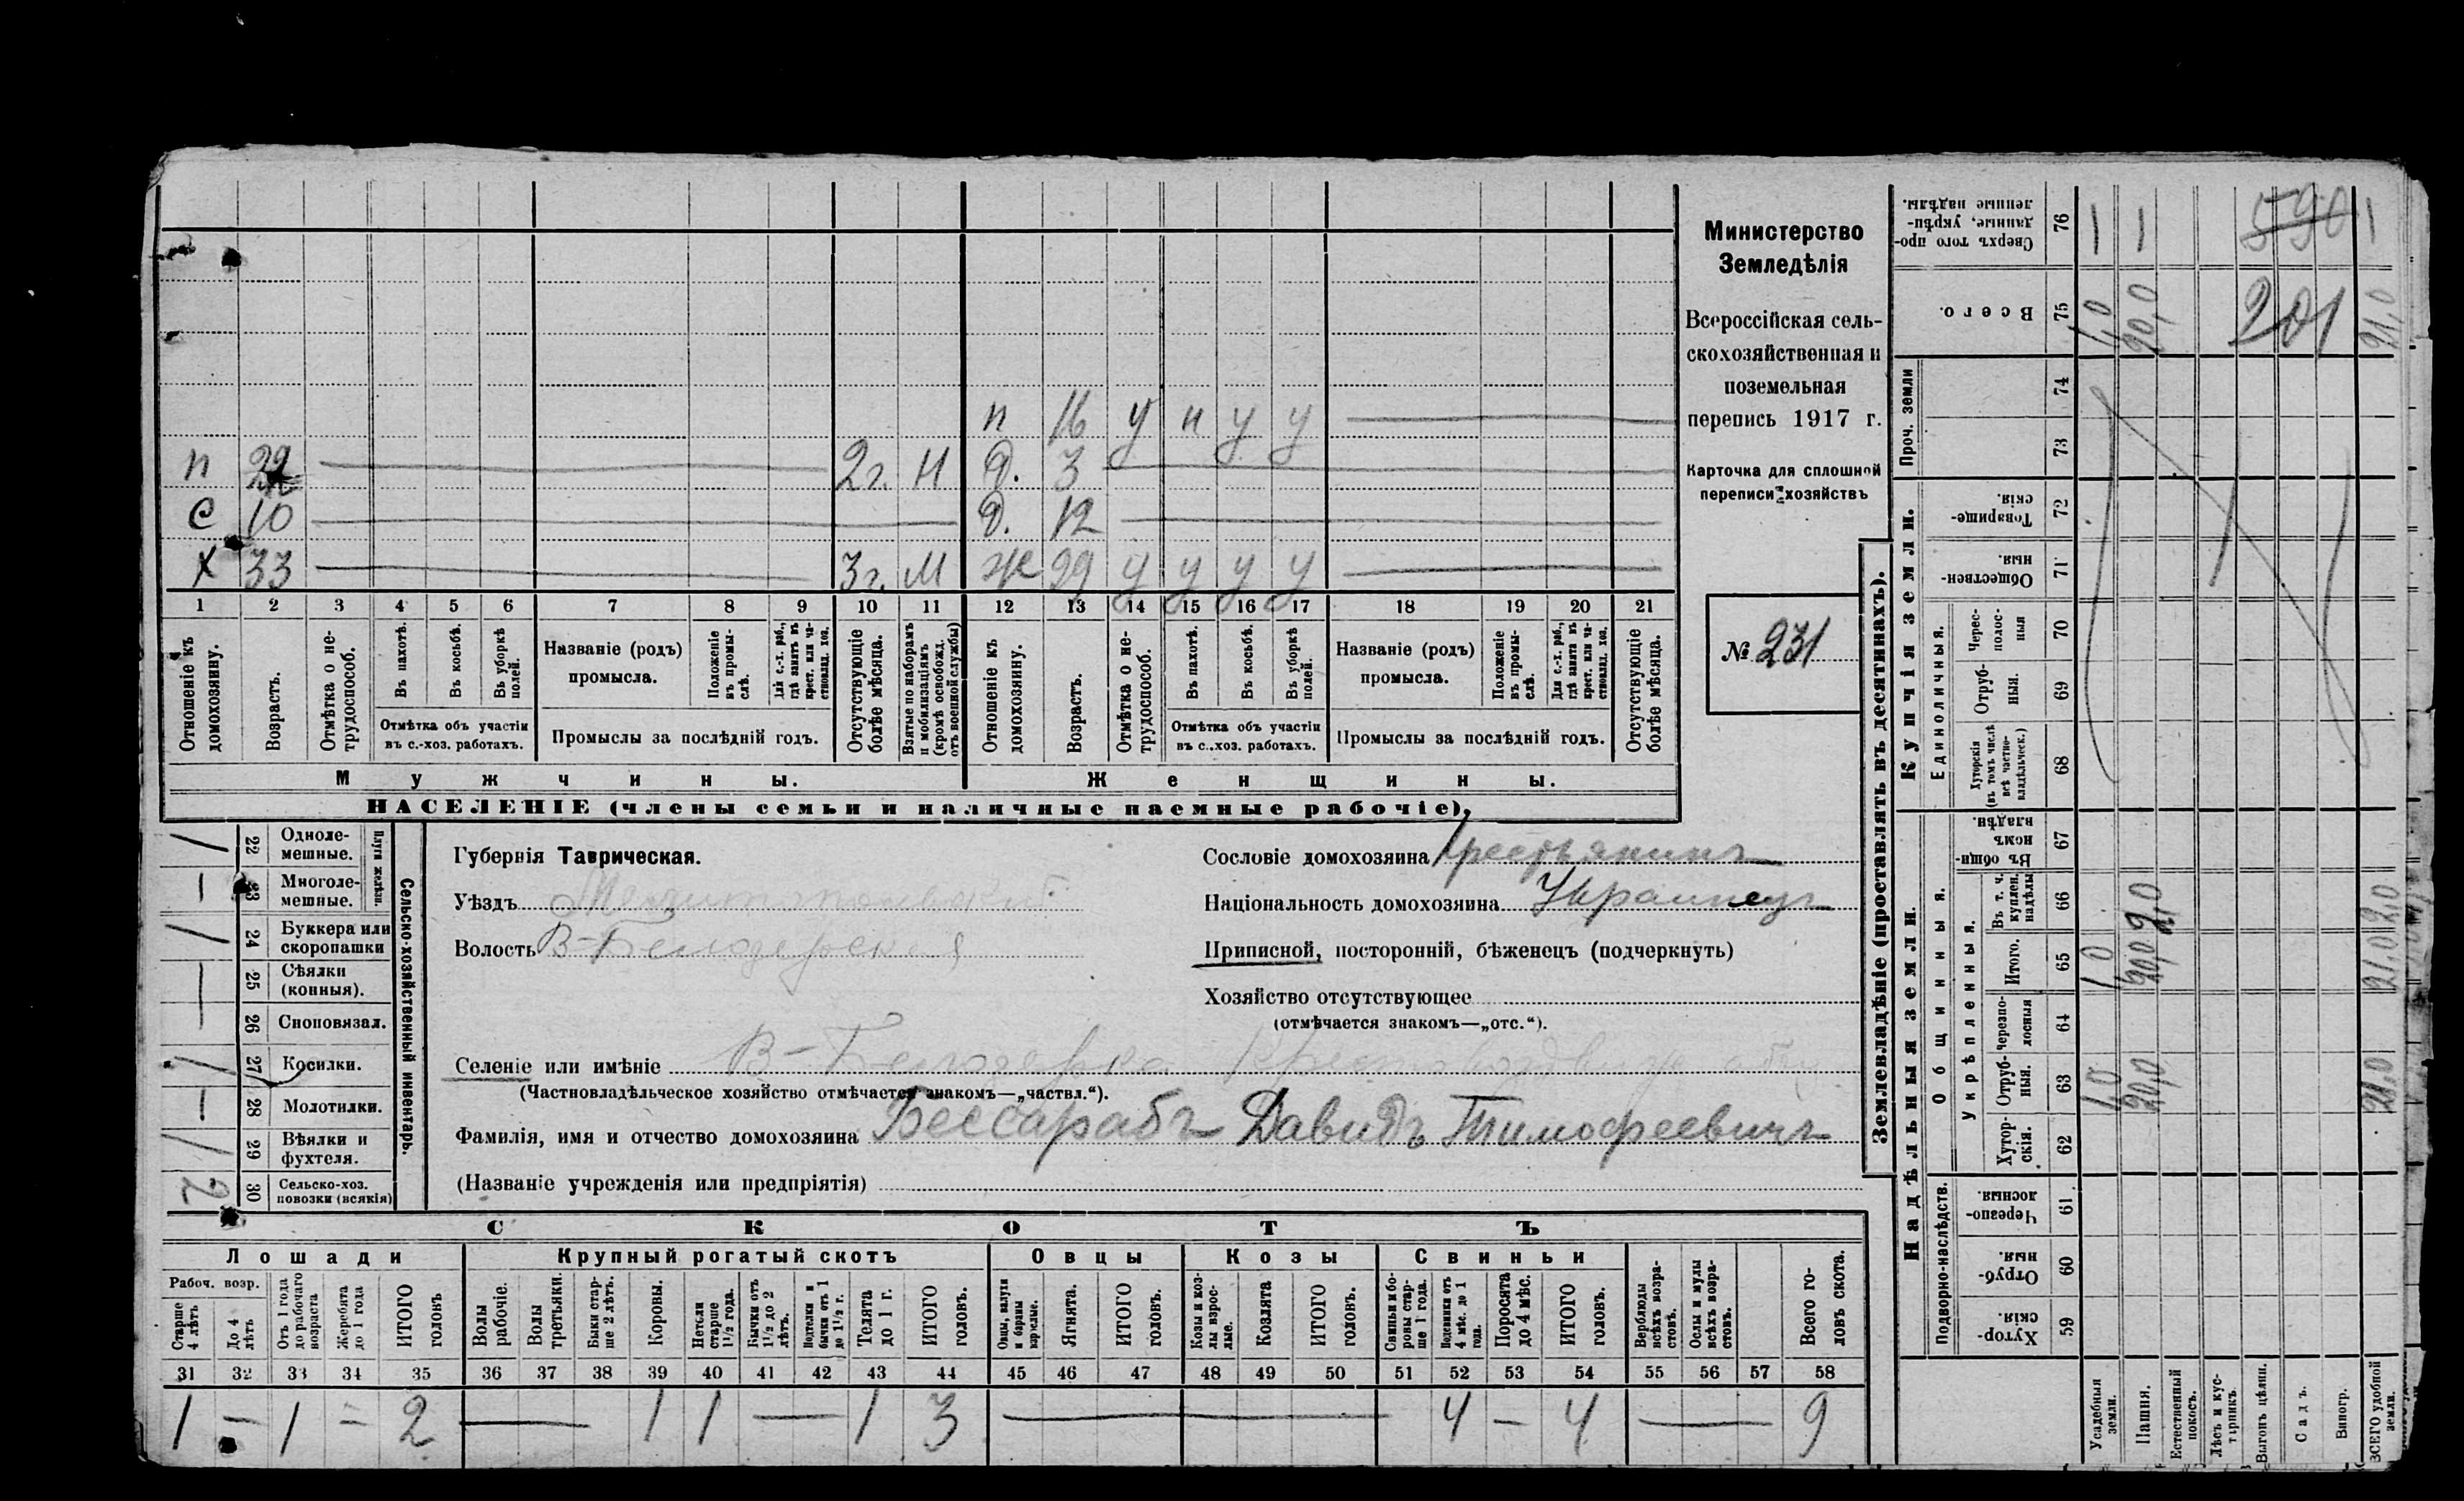 Министерство
Земледѣлія
Всероссійская сель-
скохозяйственная и
поземельная
перепись 1917 г.
Карточка для сплошной
переписи хозяйствъ
№ 231
п 16 у н у у
п 2г. Н д. 3
с 10 д. 12
х 33 3г. М ж 29 у у у у
1 2 3 4 5 6 7 8 9 10 11 12 13 14 15 16 17 18 19 20 21
Отношеніе къ домохозяину.
Возрастъ.
Отмѣтка о не-трудоспособ.
Въ пахотѣ.
Въ косьбѣ.
Въ уборкѣ полей.
Отмѣтка объ участіи въ с.-хоз. работахъ.
Названіе (родъ) промысла.
Положеніе въ промы-слѣ.
Для с.-х. раб., гдѣ занятъ въ крест. или ча-стновлад. хоз.
Промыслы за послѣдній годъ.
Отсутствующіе болѣе мѣсяца.
Взятые по наборамъ и мобилизаціямъ (кромѣ освобожд. отъ военной службы)
Отношеніе къ домохозяину.
Возрастъ.
Отмѣтка о не-трудоспособ.
Въ пахотѣ.
Въ косьбѣ.
Въ уборкѣ полей.
Отмѣтка объ участіи въ с.-хоз. работахъ.
Названіе (родъ) промысла.
Положеніе въ промы-слѣ.
Для с.-х. раб., гдѣ занята въ крест. или ча-стновлад. хоз.
Промыслы за послѣдній годъ.
Отсутствующіе болѣе мѣсяца.
Мужчины. Женщины.
НАСЕЛЕНІЕ (члены семьи и наличные наемные рабочіе).
Сельско-хозяйственный инвентарь.
Плуги желѣзн.
22 Одноле-мешные. 1
23 Многоле-мешные. —
24 Буккера или скоропашки 1
25 Сѣялки (конныя). —
26 Сноповязал.
27 Косилки. 1
28 Молотилки. —
29 Вѣялки и фухтеля. 1
30 Сельско-хоз. повозки (всякія) 2
Губернія Таврическая.
Уѣздъ Мелитопольскій
Волость В-Белозерская
Сословіе домохозяина Крестьянинъ
Національность домохозяина Украинецъ
Приписной, посторонній, бѣженецъ (подчеркнуть)
Хозяйство отсутствующее
(отмѣчается знакомъ—„отс.“).
Селеніе или имѣніе В-Белозерка
(Частновладѣльческое хозяйство отмѣчается знакомъ—„частвл.“).
Фамилія, имя и отчество домохозяина Бессарабъ Давидъ Тимофеевичъ
(Названіе учрежденія или предпріятія)
СКОТЪ
Лошади Крупный рогатый скотъ Овцы Козы Свиньи
Рабоч. возр.
Старше 4 лѣтъ
До 4 лѣтъ
Отъ 1 года до рабочаго возраста
Жеребята до 1 года
ИТОГО головъ
Волы рабочіе.
Волы третьяки.
Быки стар-ше 2 лѣтъ.
Коровы.
Нетели старше 1½ года.
Бычки отъ 1½ до 2 лѣтъ.
Подтелки и бычки отъ 1 до 1½ г.
Телята до 1 г.
ИТОГО головъ.
Овцы, валухи и бараны взрослые.
Ягнята.
ИТОГО головъ.
Козы и коз-лы взрос-лые.
Козлята
ИТОГО головъ.
Свиньи и бо-ровы стар-ше 1 года.
Подсвинки отъ 4 мѣс. до 1 года.
Поросята до 4 мѣс.
ИТОГО головъ.
Верблюды всѣхъ возра-стовъ.
Ослы и мулы всѣхъ возра-стовъ.
Всего го-ловъ скота.
31 32 33 34 35 36 37 38 39 40 41 42 43 44 45 46 47 48 49 50 51 52 53 54 55 56 57 58
1 — 1 = 2 — 1 1 — 1 3 — 4 — 4 — 9
Землевладѣніе (проставлять въ десятинахъ).
Надѣльныя земли.
Подворно-наслѣдств.
Хутор-скія. 59
Отруб-ныя. 60
Черезпо-лосныя. 61
Общинныя.
Укрѣпленныя.
Хутор-скія. 62
Отруб-ныя. 63 1,0 20,0 21,0
Черезпо-лосныя 64
Итого. 65 1,0 20,0 21,0
Въ т. ч. куплен. надѣлы 66 2,0 2,0
Въ общин-номъ владѣн. 67
Купчія земли.
Единоличныя.
Хуторскія (въ томъ числѣ всѣ частно-владѣльческ.) 68
Отруб-ныя. 69
Черес-полос-ныя 70
Обществен-ныя 71
Товарище-скія. 72
Проч. земли
73
74
Всего. 75 1,0 20,0 201 21,0
Сверхъ того про-данные, укрѣп-ленные надѣлы. 76 590
Усадебныя земли.
Пашня.
Естественный покосъ.
Лѣсъ и кус-тарникъ.
Выгонъ цѣлин.
Садъ.
Виногр.
ВСЕГО удобной земли.